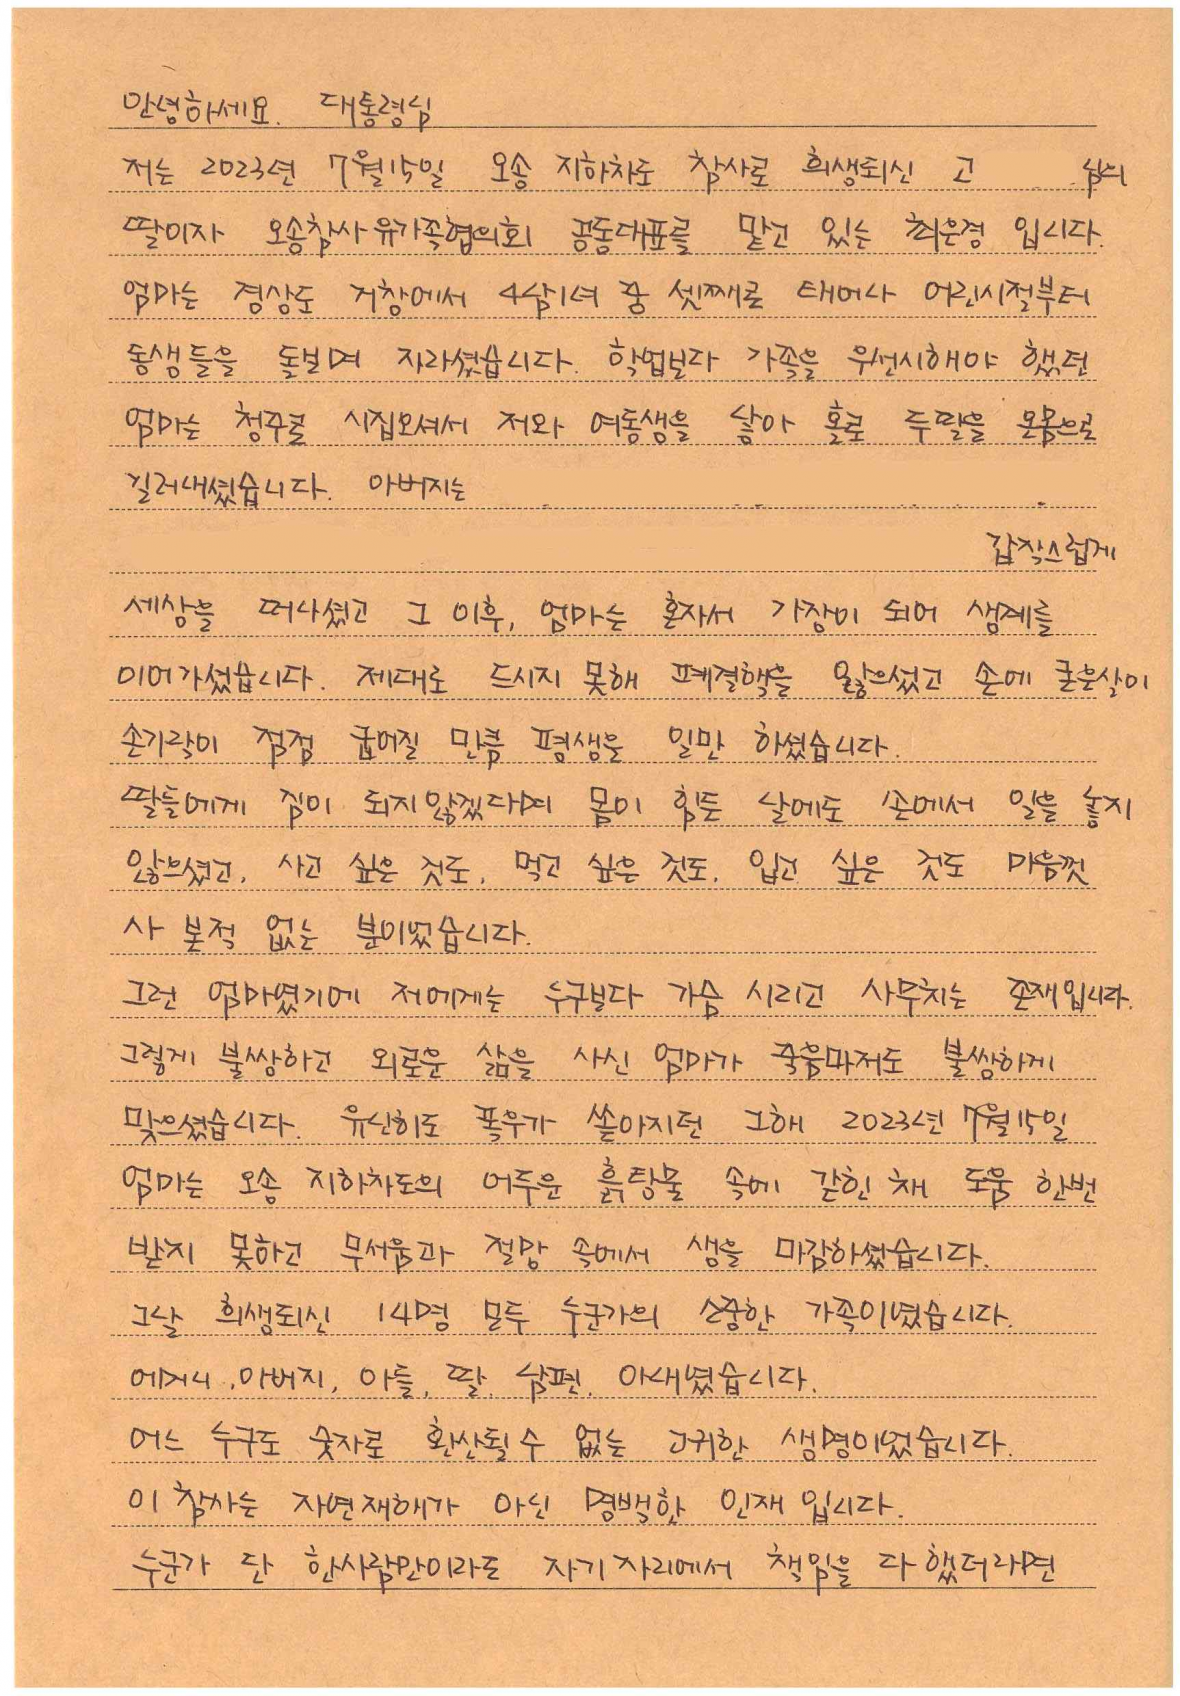 안녕하세요. 대통령님
저는 2023년 7월15일 오송 지하차도 참사로 희생되신 고 님의
딸이자 오송참사유가족협의회 공동대표를 맡고 있는 최은경 입니다.
엄마는 경상도 거창에서 4남1녀 중 셋째로 태어나 어린시절부터
동생들을 돌보며 자라셨습니다. 학업보다 가족을 우선시해야 했던
엄마는 청주로 시집오셔서 저와 여동생을 낳아 홀로 두딸을 온몸으로
길러내셨습니다. 아버지는
갑작스럽게
세상을 떠나셨고 그 이후, 엄마는 혼자서 가장이 되어 생계를
이어가셨습니다. 제대로 드시지 못해 폐결핵을 앓으셨고 손에 굳은살이
손가락이 점점 굽어질 만큼 평생을 일만 하셨습니다.
딸들에게 짐이 되지않겠다며 몸이 힘든 날에도 손에서 일을 놓지
않으셨고, 사고 싶은 것도, 먹고 싶은 것도, 입고 싶은 것도 마음껏
사 본적 없는 분이었습니다.
그런 엄마였기에 저에게는 누구보다 가슴 시리고 사무치는 존재입니다.
그렇게 불쌍하고 외로운 삶을 사신 엄마가 죽음마저도 불쌍하게
맞으셨습니다. 유난히도 폭우가 쏟아지던 그해 2023년 7월15일
엄마는 오송 지하차도의 어두운 흙탕물 속에 갇힌 채 도움 한번
받지 못하고 무서움과 절망 속에서 생을 마감하셨습니다.
그날 희생되신 14명 모두 누군가의 소중한 가족이였습니다.
어머니, 아버지, 아들, 딸, 남편, 아내였습니다.
어느 누구도 숫자로 환산될수 없는 고귀한 생명이었습니다.
이 참사는 자연재해가 아닌 명백한 인재 입니다.
누군가 단 한사람만이라도 자기자리에서 책임을 다했더라면